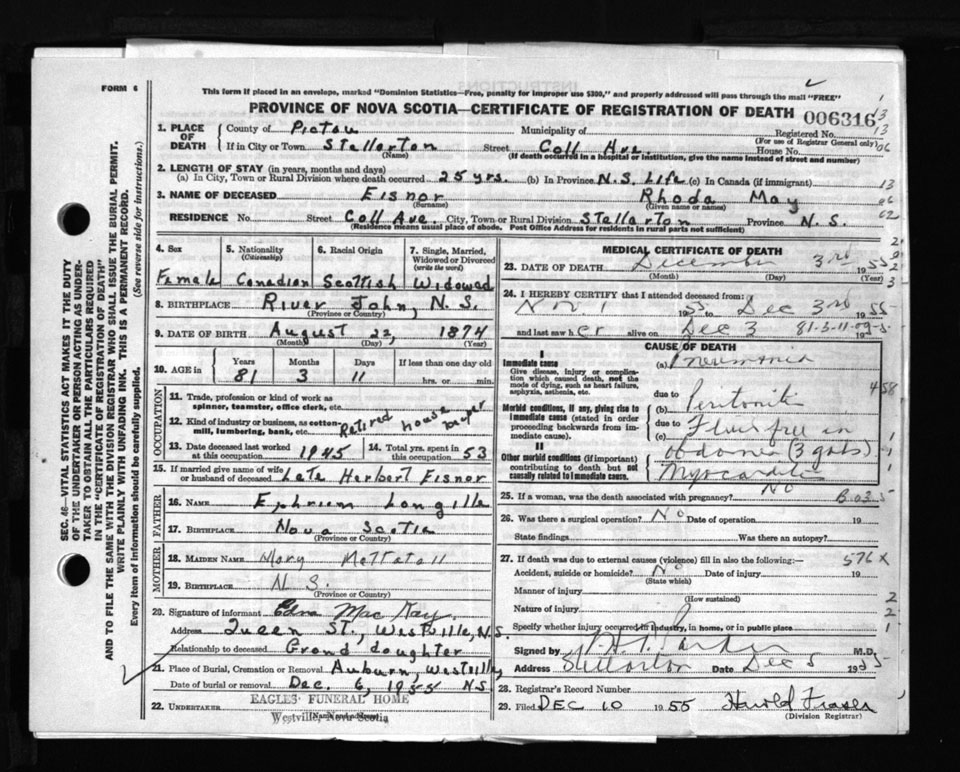 FORM 6
This form if placed in an envelope, marked "Dominion Statistics—Free, penalty for improper use $300," and properly addressed will pass through the mail "FREE"
PROVINCE OF NOVA SCOTIA—CERTIFICATE OF REGISTRATION OF DEATH 006316
1. PLACE OF DEATH
County of Pictou Municipality of Registered No.
(For use of Registrar General only)
If in City or Town Stellarton Street Coll Ave. House No.
(Name) (If death occurred in a hospital or institution, give the name instead of street and number)
2. LENGTH OF STAY (in years, months and days)
(a) In City, Town or Rural Division where death occurred 25 yrs. (b) In Province N.S. Life (c) In Canada (if immigrant)
3. NAME OF DECEASED Eisnor Rhoda May
(Surname) (Given name or names)
RESIDENCE No. Street Coll Ave. City, Town or Rural Division Stellarton Province N.S.
(Residence means usual place of abode. Post Office Address for residents in rural parts not sufficient)
13
13
06
13
06
62
SEC. 46—VITAL STATISTICS ACT MAKES IT THE DUTY
OF THE UNDERTAKER OR PERSON ACTING AS UNDER-
TAKER TO OBTAIN ALL THE PARTICULARS REQUIRED
IN THE "CERTIFICATE OF REGISTRATION OF DEATH"
AND TO FILE THE SAME WITH THE DIVISION REGISTRAR WHO SHALL ISSUE THE BURIAL PERMIT.
WRITE PLAINLY WITH UNFADING INK. THIS IS A PERMANENT RECORD.
Every item of information should be carefully supplied. (See reverse side for instructions.)
4. Sex 5. Nationality (Citizenship) 6. Racial Origin 7. Single, Married, Widowed or Divorced (write the word)
Female Canadian Scottish Widowed
8. BIRTHPLACE River John, N.S.
(Province or Country)
9. DATE OF BIRTH August 22, 1874
(Month) (Day) (Year)
10. AGE IN Years Months Days If less than one day old
81 3 11 hrs. or min.
OCCUPATION
11. Trade, profession or kind of work as spinner, teamster, office clerk, etc.
12. Kind of industry or business, as cotton-mill, lumbering, bank, etc. Retired house keeper
13. Date deceased last worked at this occupation 1945 14. Total yrs. spent in this occupation 53
15. If married give name of wife or husband of deceased Late Herbert Eisnor
FATHER
16. NAME Ephriem Longille
17. BIRTHPLACE Nova Scotia
(Province or Country)
MOTHER
18. MAIDEN NAME Mary Mattatall
19. BIRTHPLACE N.S.
(Province or Country)
20. Signature of informant Edna MacKay.
Address Queen St., Westville, N.S.
Relationship to deceased Grand daughter
21. Place of Burial, Cremation or Removal Auburn, Westville,
Date of burial or removal Dec. 6, 1955 N.S.
22. UNDERTAKER EAGLES' FUNERAL HOME
Westville, Nova Scotia
MEDICAL CERTIFICATE OF DEATH
23. DATE OF DEATH December 3rd 1955
(Month) (Day) (Year)
24. I HEREBY CERTIFY that I attended deceased from:
Nov 1 1955 to Dec 3rd 1955
and last saw her alive on Dec 3 19
CAUSE OF DEATH
I
Immediate cause
Give disease, injury or complication which caused death, not the mode of dying, such as heart failure, asphyxia, asthenia, etc.
(a) Pneumonia
due to
Morbid conditions, if any, giving rise to immediate cause (stated in order proceeding backwards from immediate cause).
Peritonitis
due to
(c) Fluid free in
II
Other morbid conditions (if important) contributing to death but not causally related to immediate cause.
abdomen (3 gals)
Myocarditis
25. If a woman, was the death associated with pregnancy? No
26. Was there a surgical operation? No Date of operation 19
State findings Was there an autopsy?
27. If death was due to external causes (violence) fill in also the following:— 576 X
Accident, suicide or homicide? No Date of injury 19
(State which)
Manner of injury
(How sustained)
Nature of injury
Specify whether injury occurred in industry, in home, or in public place
Signed by M.D.
Address Stellarton Date Dec 5 1955
28. Registrar's Record Number
29. Filed DEC 10 1955 Harold Fraser
(Division Registrar)